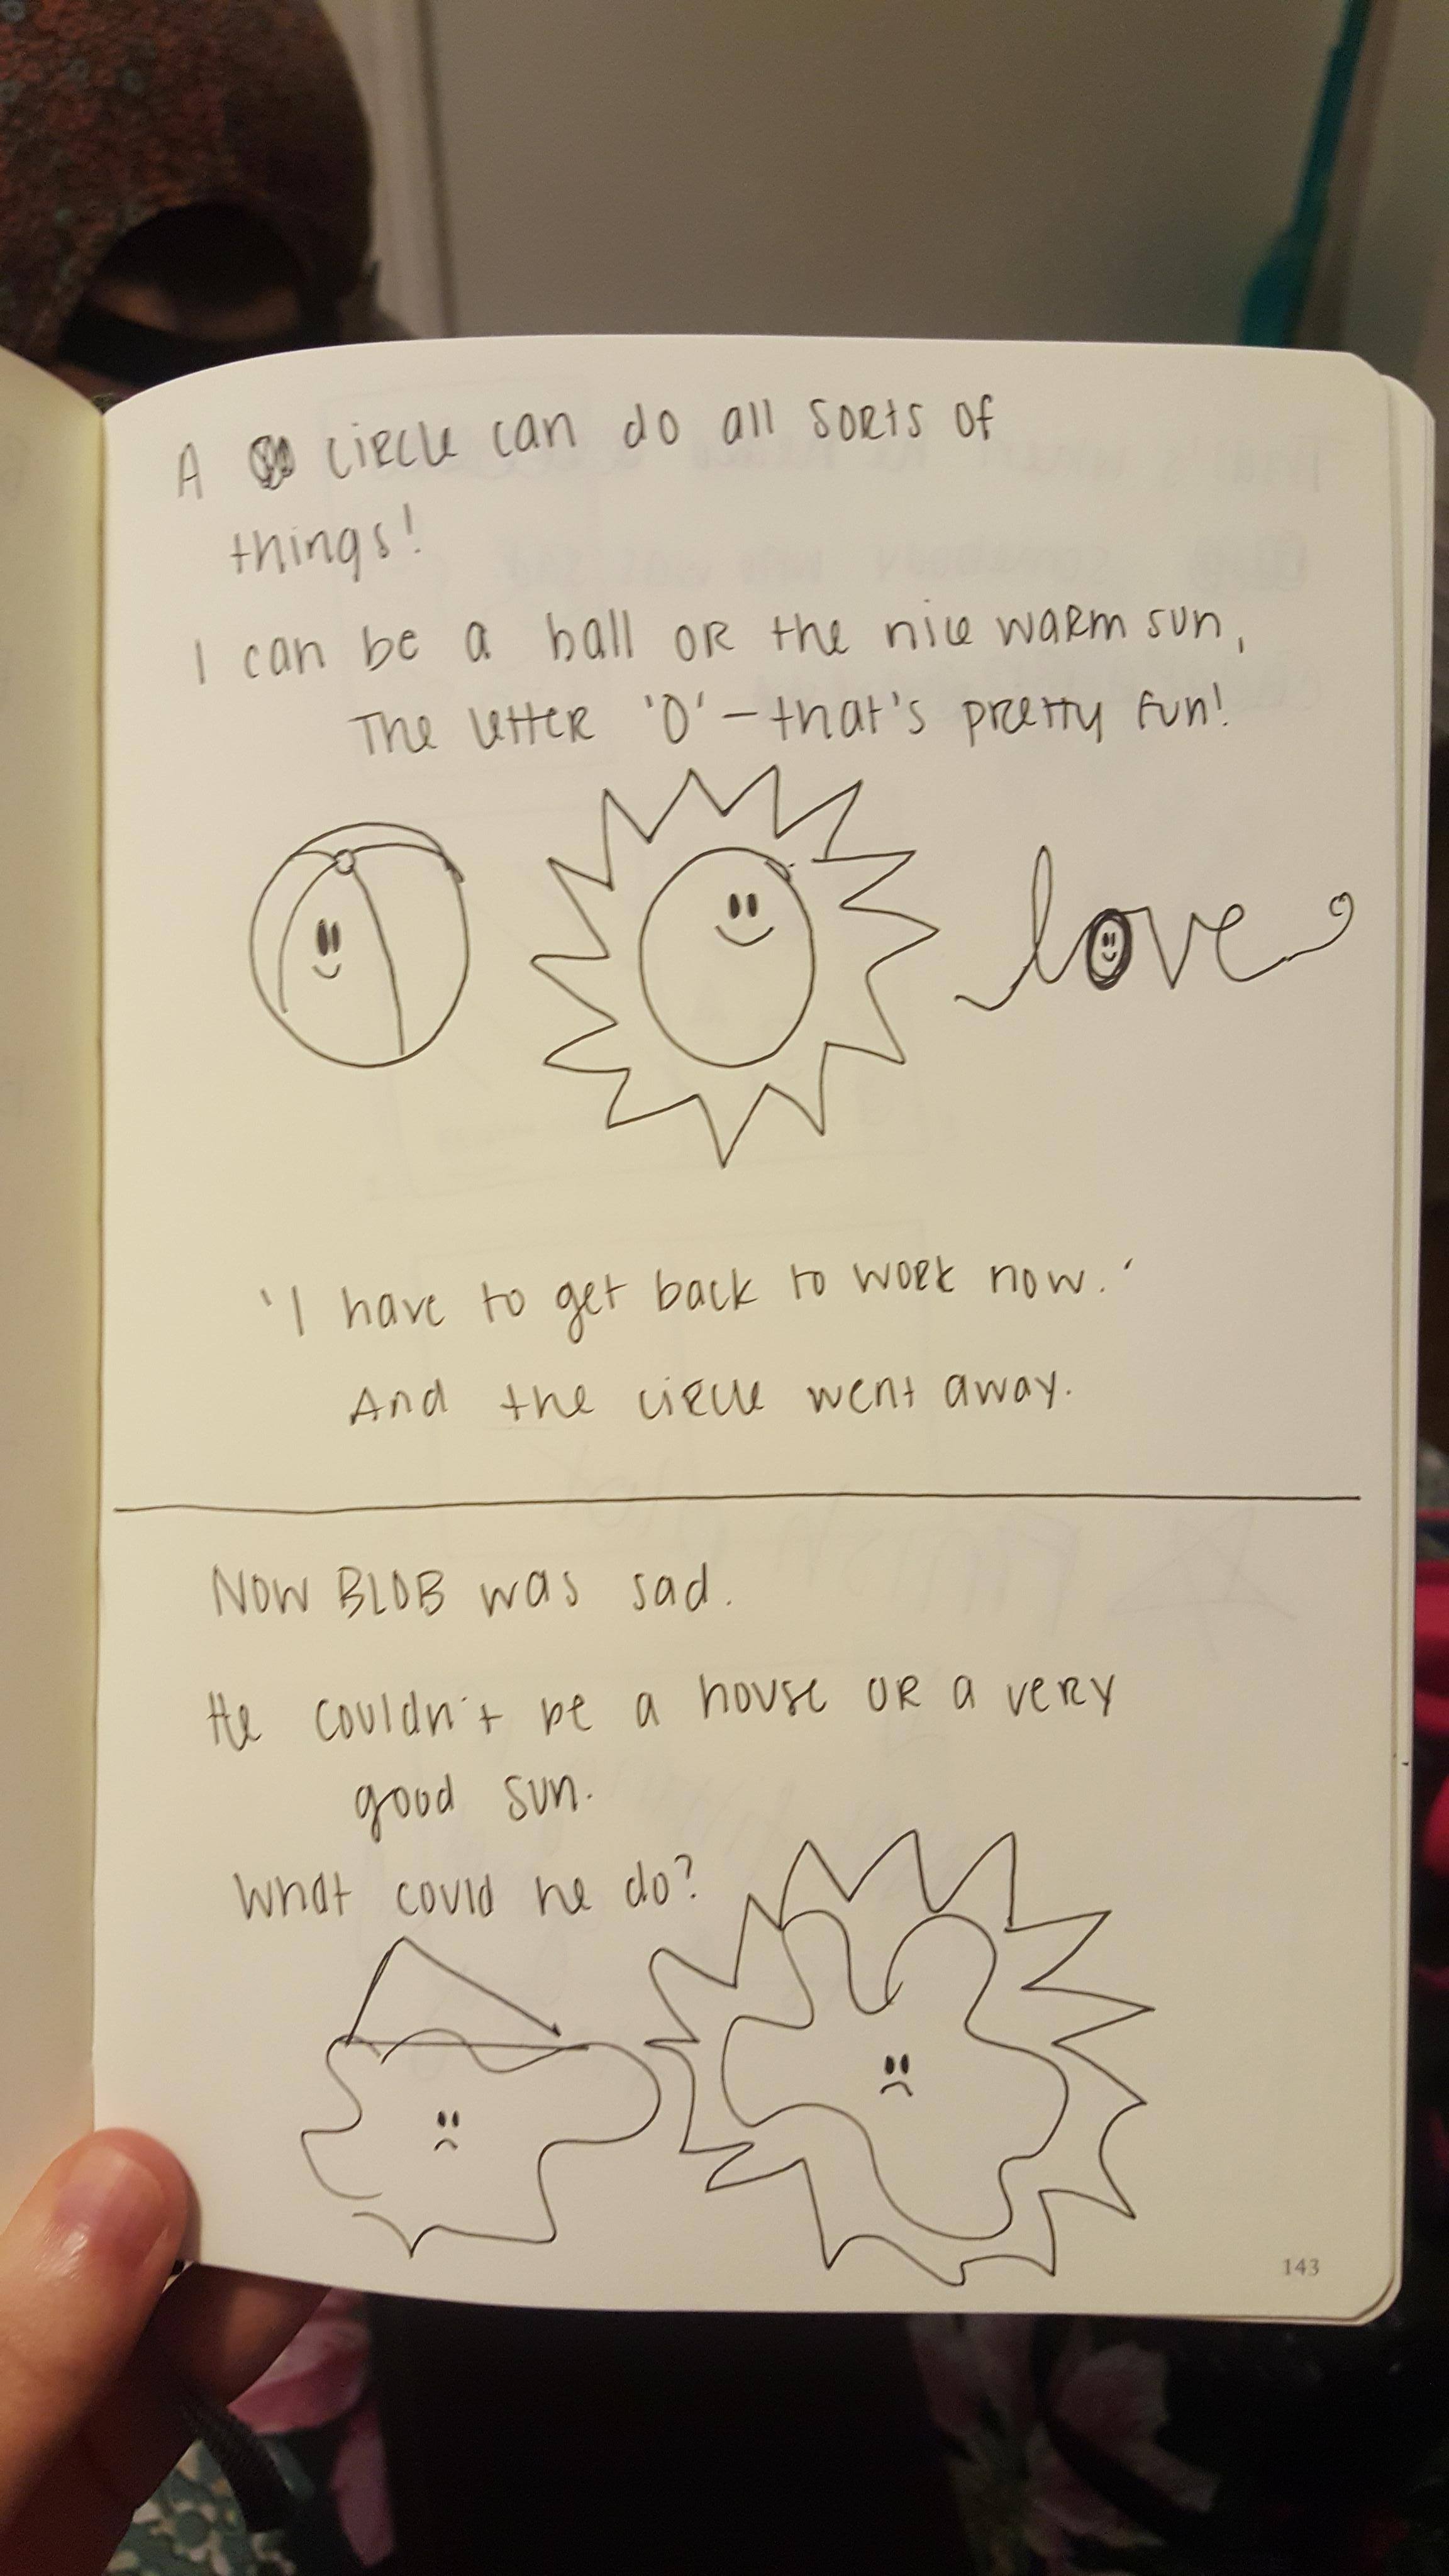 A circle can do all sorts of
things!
I can be a ball or the nice warm sun,
The letter 'O' – that's pretty fun!
love
'I have to get back to work now.'
And the circle went away.
Now BLOB was sad.
He couldn't be a house or a very
good sun.
What could he do?
143